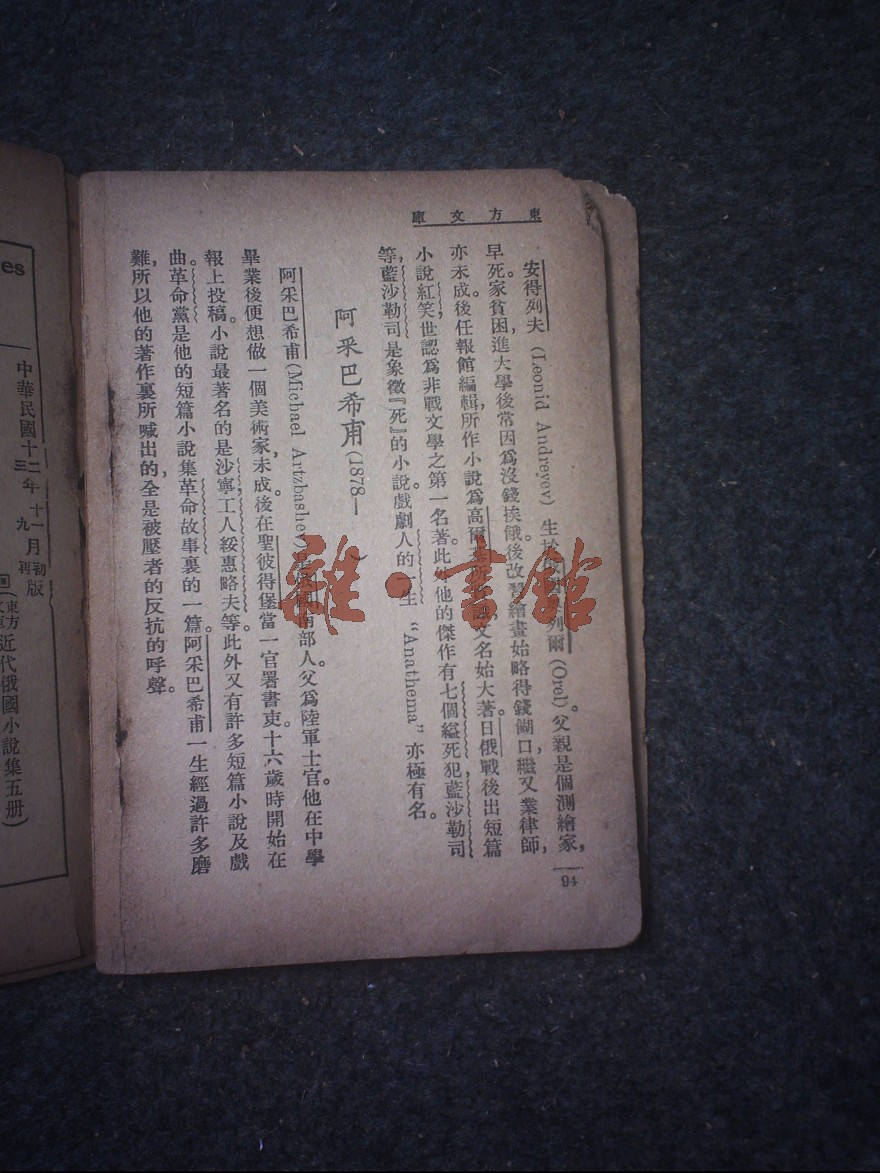 東方文庫
安得列夫 (Leonid Andreyev) 生於 列爾 (Orel)。父親是個測繪家，
早死。家貧困，進大學後常因爲沒錢挨餓。後改習繪畫始略得錢餬口，繼又業律師，
亦未成。後任報館編輯，所作小說爲高爾 文名始大著。日俄戰後出短篇
小說紅笑，世認爲非戰文學之第一名著。此外他的傑作有七個縊死犯藍沙勒司
等，藍沙勒司是象徵『死』的小說。戲劇人的一生 “Anathema” 亦極有名。
阿采巴希甫 (1878— )
阿采巴希甫 (Michael Artzbashev) 南部人。父爲陸軍士官。他在中學
畢業後便想做一個美術家，未成。後在聖彼得堡當一官署書吏。十六歲時開始在
報上投稿。小說最著名的是沙寧，工人綏惠略夫等。此外又有許多短篇小說及戲
曲。革命黨是他的短篇小說集革命故事裏的一篇。阿采巴希甫一生經過許多磨
難，所以他的著作裏所喊出的，全是被壓者的反抗的呼聲。
94
es
中華民國十二年十一月初版
三 九 再
東方
近代俄國小說集五册）
雜·書館